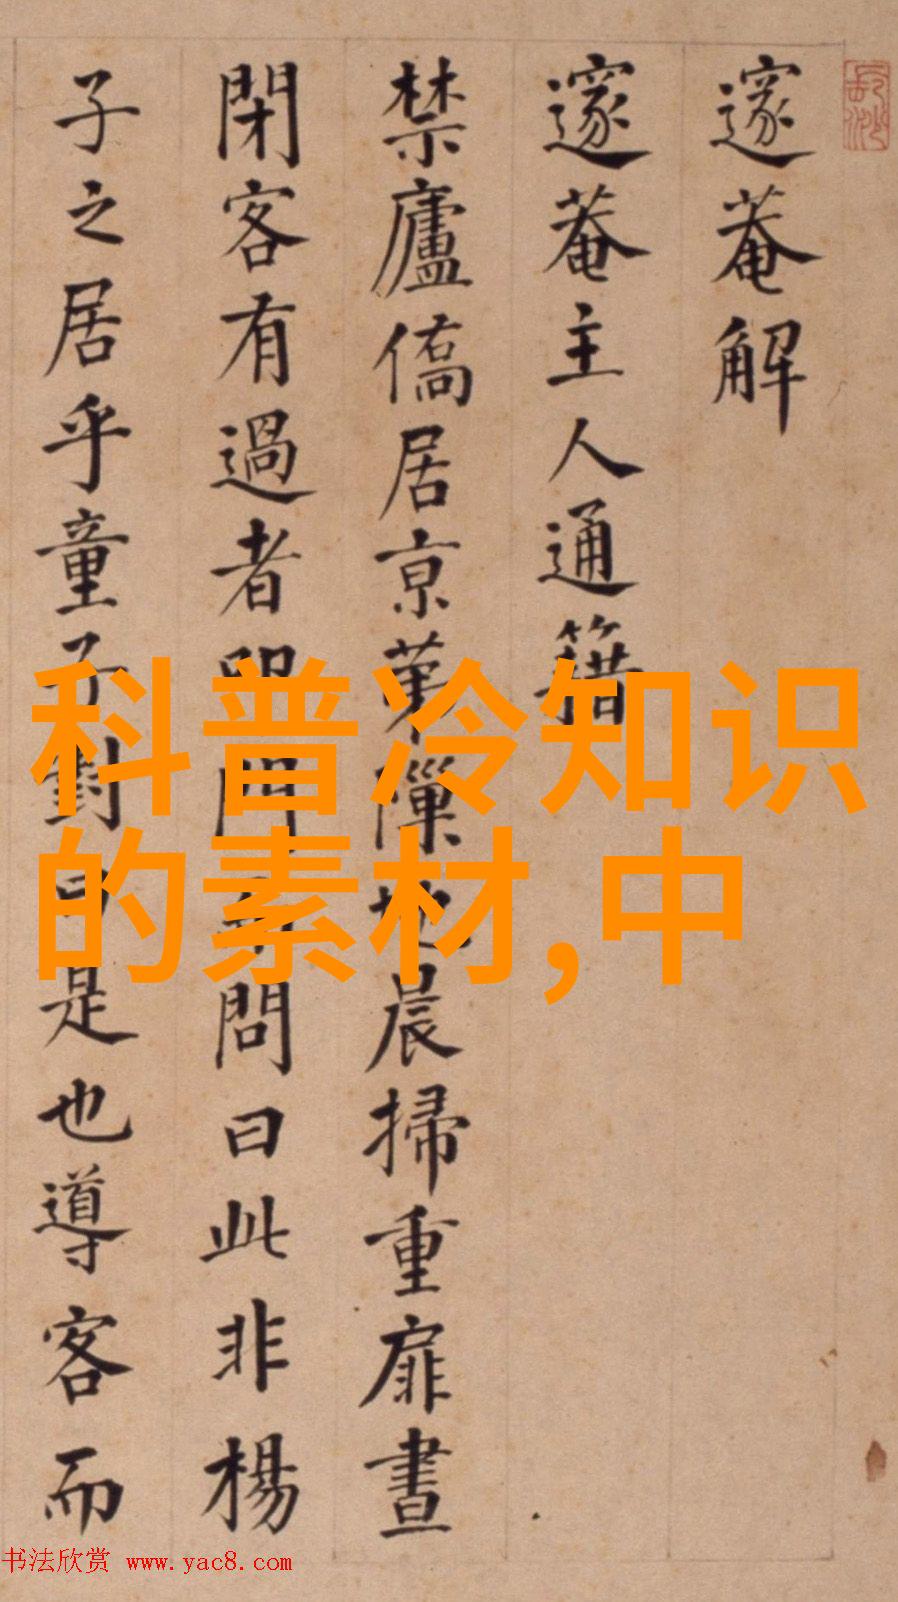 邃菴解
邃菴主人通籍
禁廬僑居京第隟地晨掃重扉晝
閉客有過者即門而問曰此非楊
子之居乎童子對曰是也導客而
科普冷知识
的素材,中
书法欣赏 www.yac8.com